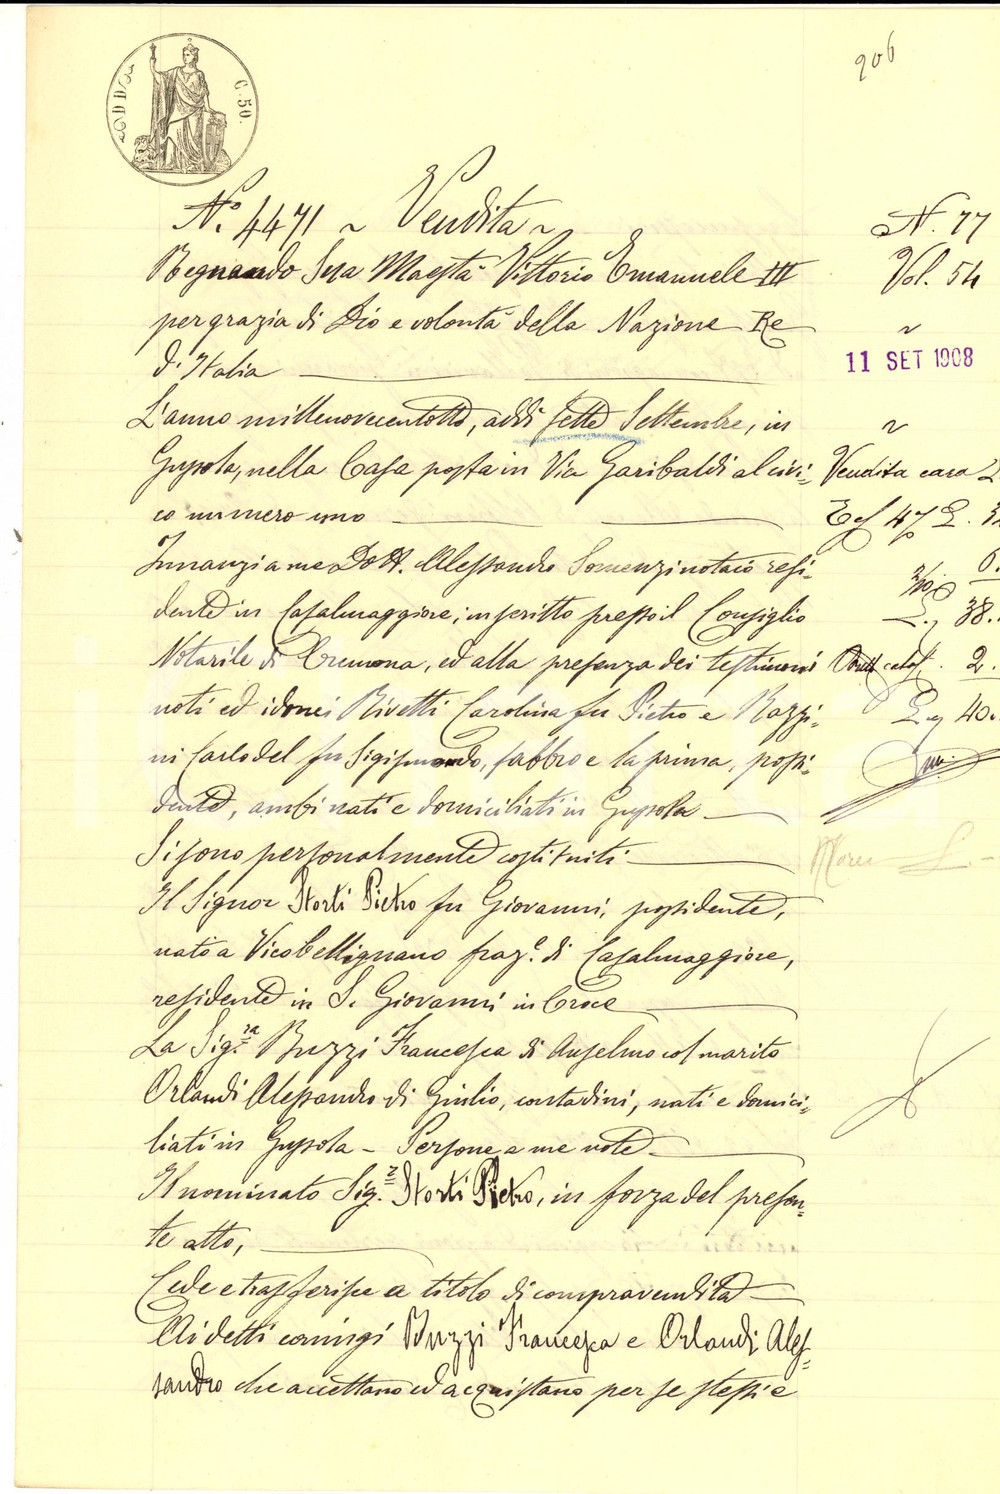 906
C. 50.
N.° 4471 ~ Vendita ~
Regnando Sua Maestà Vittorio Emanuele III
per grazia di Dio e volontà della Nazione Re
d'Italia
L'anno millenovecentotto, addì sette Settembre, in
Gussola, nella Casa posta in Via Garibaldi al civi-
co numero uno
Innanzi a me Dott. Alessandro Somenzi notaio resi-
dente in Casalmaggiore, inscritto presso il Consiglio
Notarile di Cremona, ed alla presenza dei testimoni
noti ed idonei Rivetti Carolina fu Pietro e Bozzi-
ni Carlo del fu Sigismondo, fabbro e la prima, possi-
dente, ambi nati e domiciliati in Gussola
Si sono personalmente costituiti
Il Signor Storti Pietro fu Giovanni, possidente,
nato a Vicobellignano fraz.e di Casalmaggiore,
residente in S. Giovanni in Croce
La Sig.ra Buzzi Francesca di Anselmo col marito
Orlandi Alessandro di Giulio, contadini, nati e domici-
liati in Gussola - Persone a me note
Il nominato Sig.r Storti Pietro, in forza del presen-
te atto,
Cede e trasferisce a titolo di compravendita
Ai detti coniugi Buzzi Francesca e Orlandi Ales-
sandro che accettano ed acquistano per se stessi e
N. 77
Vol. 54
~
11 SET 1908
~
Vendita casa
47
38.
2.
40.